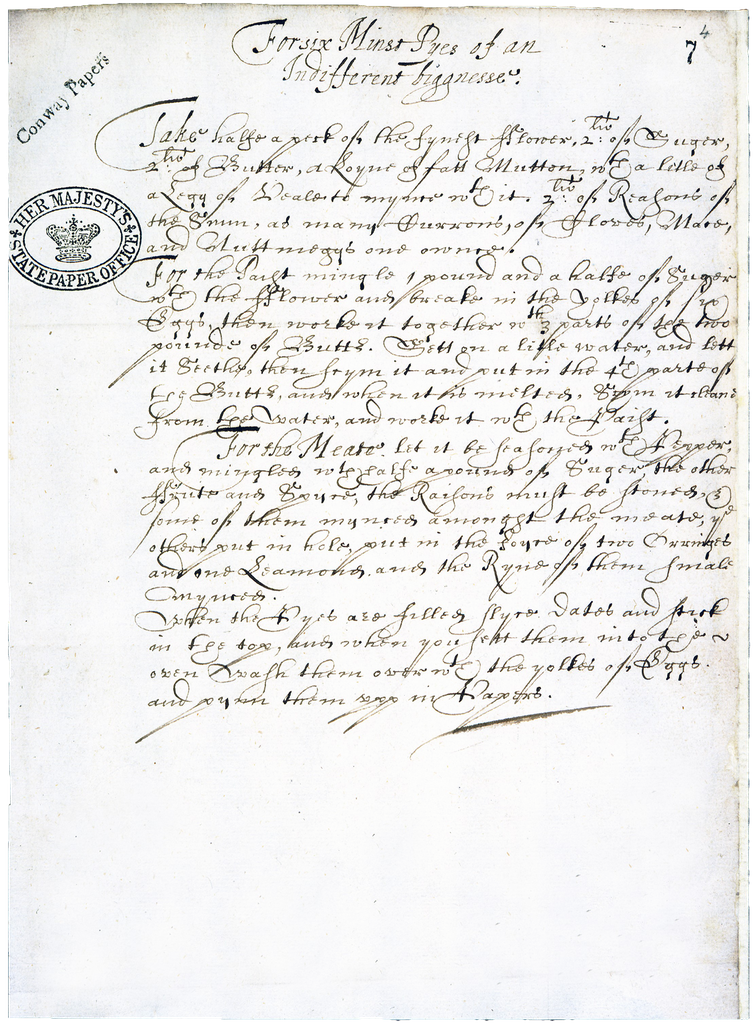 4
7
For six Minst Pyes of an
Indifferent biggnesse.
Conway Papers
HER MAJESTY'S
STATE PAPER OFFICE
Take halfe a peck of the fynest fflower, 2:lib of Suger,
2:lib of Butter, a Loyne of fatt Mutton, wth a litle of
a Legg of Veale to mynce wth it. 2:lib of Reasons of
the Sunn, as many Currons, of Cloves, Mace,
and Nuttmeggs one ownce.
For the Paist mingle 1 pound and a halfe of Suger
wth the fflower and breake in the yolkes of six
Eggs, then worke it together wth 3 parts of the two
pounds of Buttr. Sett on a litle water, and lett
it Seethe, then scym it and put in the 4th parte of
the Buttr, and when it is melted, Scym it cleane
from the water, and worke it wth the Paist.
For the Meate let it be seasoned wth Pepper,
and mingled wth halfe a pound of Suger the other
ffrute and Spyce, the Raisons must be stoned, &
some of them mynced amongst the meate, ye
others put in hole, put in the Joyce of two Orringes
and one Leamond, and the Ryne of them smale
mynced.
When the Pyes are filled slyce Dates and stick
in the top, and when you sett them into the
oven Wash them over wth the yolkes of Eggs.
and pynn them upp in Papers.